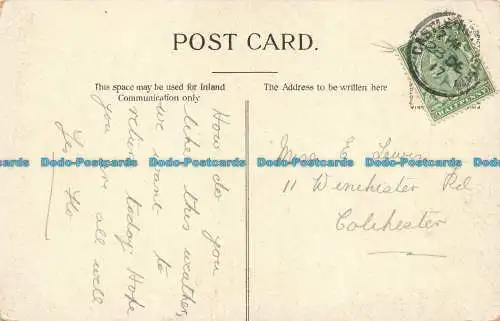 POST CARD.
This space may be used for Inland
Communication only
The Address to be written here
How do you
like this weather,
we want to
return today Hope
you are all well.
Flo
Miss E.
11 Winchester Rd
Colchester
HALFPENNY
Dodo-Postcards Dodo-Postcards Dodo-Postcards Dodo-Postcards Dodo-Postcards